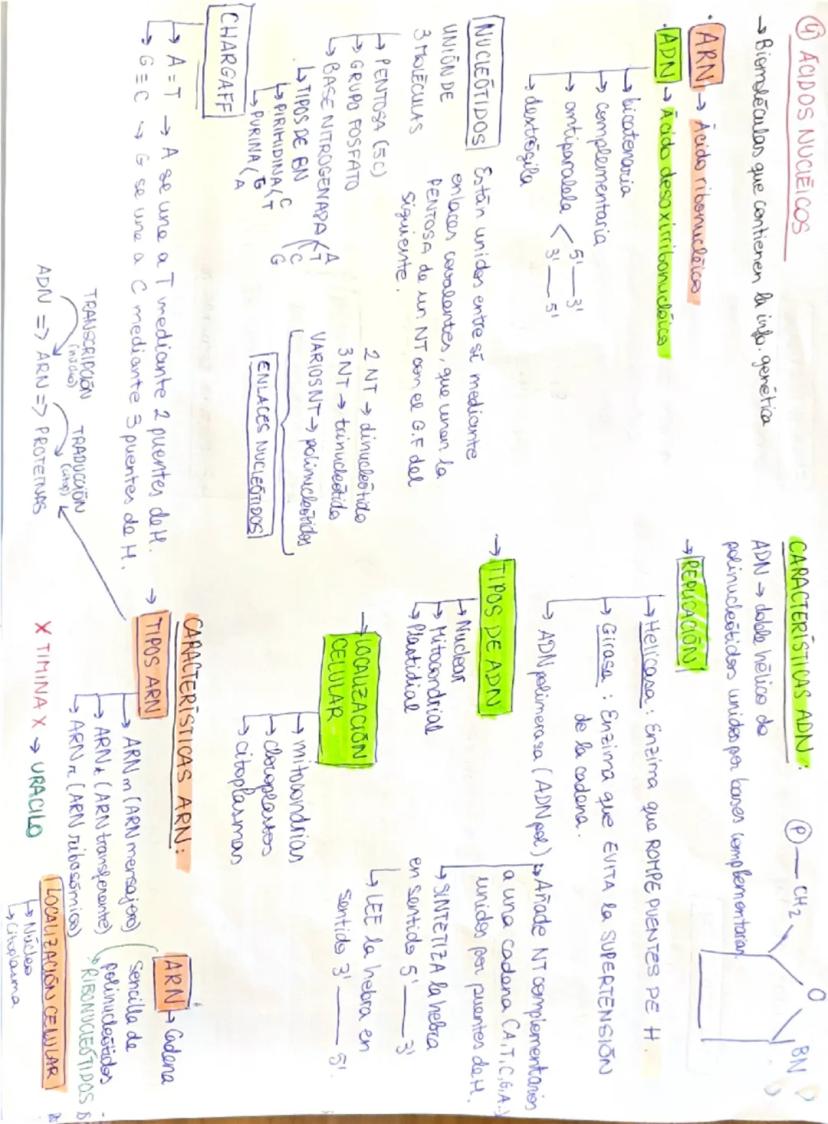 ④ ÁCIDOS NUCLÉICOS
→ Biomoléculas que contienen la info. genética
· ARN → Ácido ribonucléico
· ADN → Ácido desoxirribonucléico
↳ bicatenaria
→ complementaria
→ antiparalela < 5' — 3'
3' — 5'
→ dextrógila
NUCLEÓTIDOS
UNIÓN DE
3 MOLÉCULAS
→ PENTOSA (5C)
→ GRUPO FOSFATO
→ BASE NITROGENADA (A T C G
↳ TIPOS DE BN
↳ PIRIMIDINA (C T
↳ PURINA (G A
Están unidos entre sí mediante
enlaces covalentes, que unen la
PENTOSA de un NT con el G.F del
siguiente.
2 NT → dinucleótido
3 NT → trinucleótido
VARIOS NT → polinucleótidos
ENLACES NUCLEÓTIDOS
CHARGAFF
→ A = T → A se une a T mediante 2 puentes de H.
→ G ≡ C → G se une a C mediante 3 puentes de H.
TRANSCRIPCIÓN
(núcleo)
TRADUCCIÓN
(citop)
ADN => ARN => PROTEINAS
CARACTERÍSTICAS ADN:
ADN → doble hélice de
polinucleótidos unidos por bases complementarias.
P — CH2 O BN
→ REPLICACIÓN
→ Helicasa: Enzima que ROMPE PUENTES DE H.
→ Girasa: Enzima que EVITA la SUPERTENSIÓN
de la cadena.
↳ ADN polimerasa (ADN pol) → Añade NT complementarios
a una cadena (A,T,C,G,A..)
unidos por puentes de H.
↳ SINTETIZA la hebra
en sentido 5' — 3'
↳ LEE la hebra en
sentido 3' — 5'.
→ TIPOS DE ADN
→ Nuclear
→ Mitocondrial
→ Plastidial
→ LOCALIZACIÓN
CELULAR
→ mitocondrias
→ cloroplastos
→ citoplasmas
CARACTERÍSTICAS ARN:
→ TIPOS ARN
→ ARN m (ARN mensajero)
→ ARN t (ARN transferente)
→ ARN r (ARN ribosómico)
X TIMINA X → URACILO
ARN → Cadena
sencilla de
polinucleótidos
↳ RIBONUCLEÓTIDOS
LOCALIZACIÓN CELULAR
↳ Núcleo
→ Citoplasma